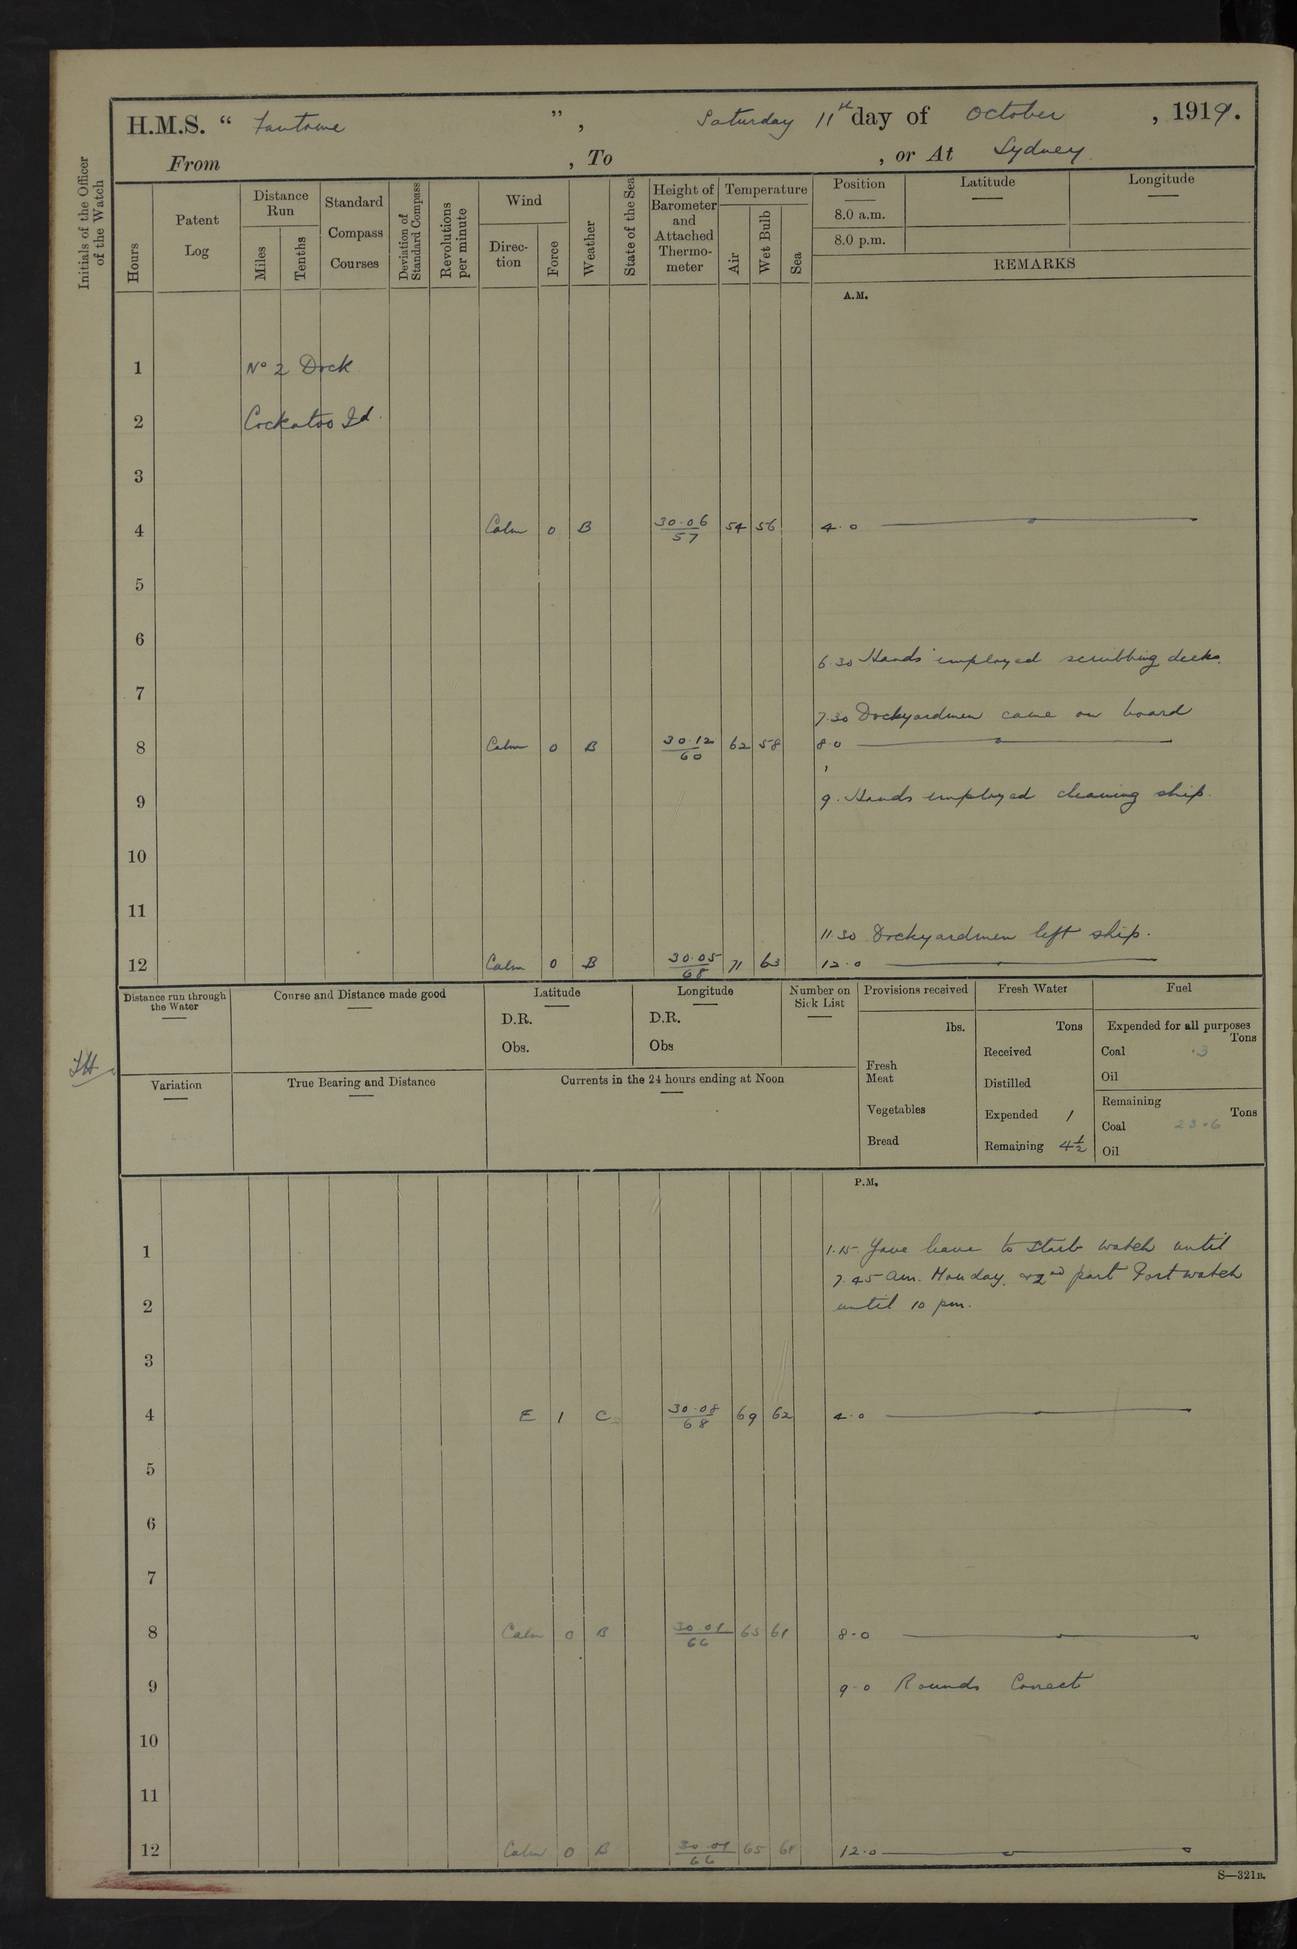 H.M.S. “ Fantome ”, Saturday 11th day of October, 1919.
From , To , or At Sydney
Initials of the Officer of the Watch
Hours
Patent Log
Distance Run
Miles
Tenths
Standard Compass Courses
Deviation of Standard Compass
Revolutions per minute
Wind
Direc-tion
Force
Weather
State of the Sea
Height of Barometer and Attached Thermo-meter
Temperature
Air
Wet Bulb
Sea
Position Latitude Longitude
8.0 a.m.
8.0 p.m.
REMARKS
A.M.
1 No 2 Dock
2 Cockatoo Id.
3
4 Calm 0 B 30.06 57 54 56 4.0
5
6
6.30 Hands employed scrubbing decks.
7
7.30 Dockyardmen came on board
8 Calm 0 B 30.12 60 62 58 8.0
9 9. Hands employed cleaning ship.
10
11
11 30 Dockyardmen left ship.
12 Calm 0 B 30.05 68 71 63 12.0
Distance run through the Water
Course and Distance made good
Latitude
D.R.
Obs.
Longitude
D.R.
Obs
Number on Sick List
Provisions received
lbs.
Fresh Meat
Vegetables
Bread
Fresh Water
Tons
Received
Distilled
Expended 1
Remaining 4½
Fuel
Expended for all purposes
Tons
Coal .3
Oil
Remaining
Tons
Coal 23.6
Oil
Variation
True Bearing and Distance
Currents in the 24 hours ending at Noon
P.M.
1 1.15 Gave leave to Starb watch until
7.45 am. Monday. & 2nd part Port watch
2 until 10 pm.
3
4 E 1 C 30.08 68 69 62 4.0
5
6
7
8 Calm 0 B 66 65 61 8.0
9 9.0 Rounds Correct
10
11
12 Calm 0 B 66 65 61 12.0
S—321B.